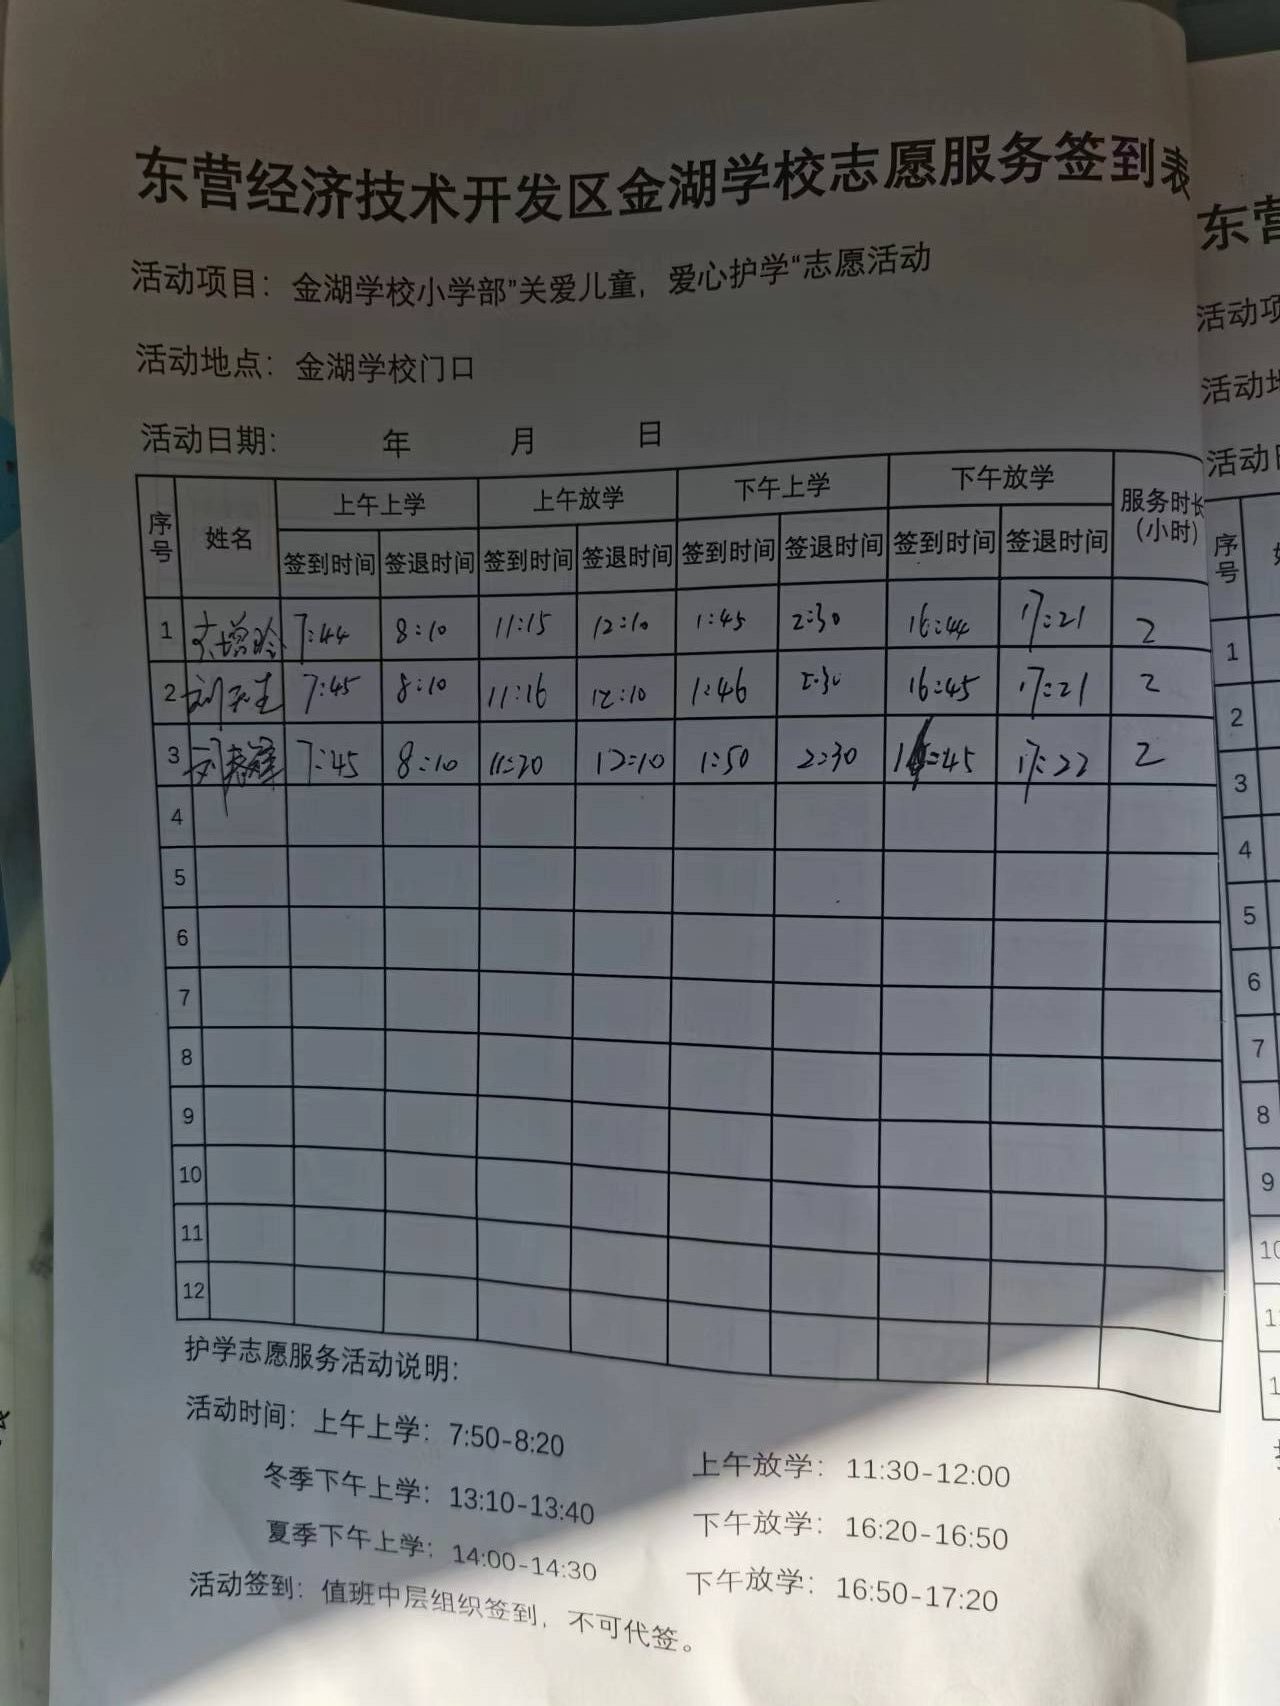 东营经济技术开发区金湖学校志愿服务签到表
活动项目：金湖学校小学部”关爱儿童，爱心护学“志愿活动
活动地点：金湖学校门口
活动日期: 年 月 日
序号 姓名 上午上学 上午放学 下午上学 下午放学 服务时长(小时)
签到时间 签退时间 签到时间 签退时间 签到时间 签退时间 签到时间 签退时间
1 7:44 8:10 11:15 12:10 1:45 2:30 16:44 17:21 2
2 7:45 8:10 11:16 12:10 1:46 2:30 16:45 17:21 2
3 7:45 8:10 11:20 12:10 1:50 2:30 16:45 17:22 2
4
5
6
7
8
9
10
11
12
护学志愿服务活动说明:
活动时间：上午上学：7:50-8:20 上午放学：11:30-12:00
冬季下午上学：13:10-13:40 下午放学：16:20-16:50
夏季下午上学：14:00-14:30 下午放学：16:50-17:20
活动签到：值班中层组织签到，不可代签。
东营
活动项
活动地
活动日
序号
1
2
3
4
5
6
7
8
9
10